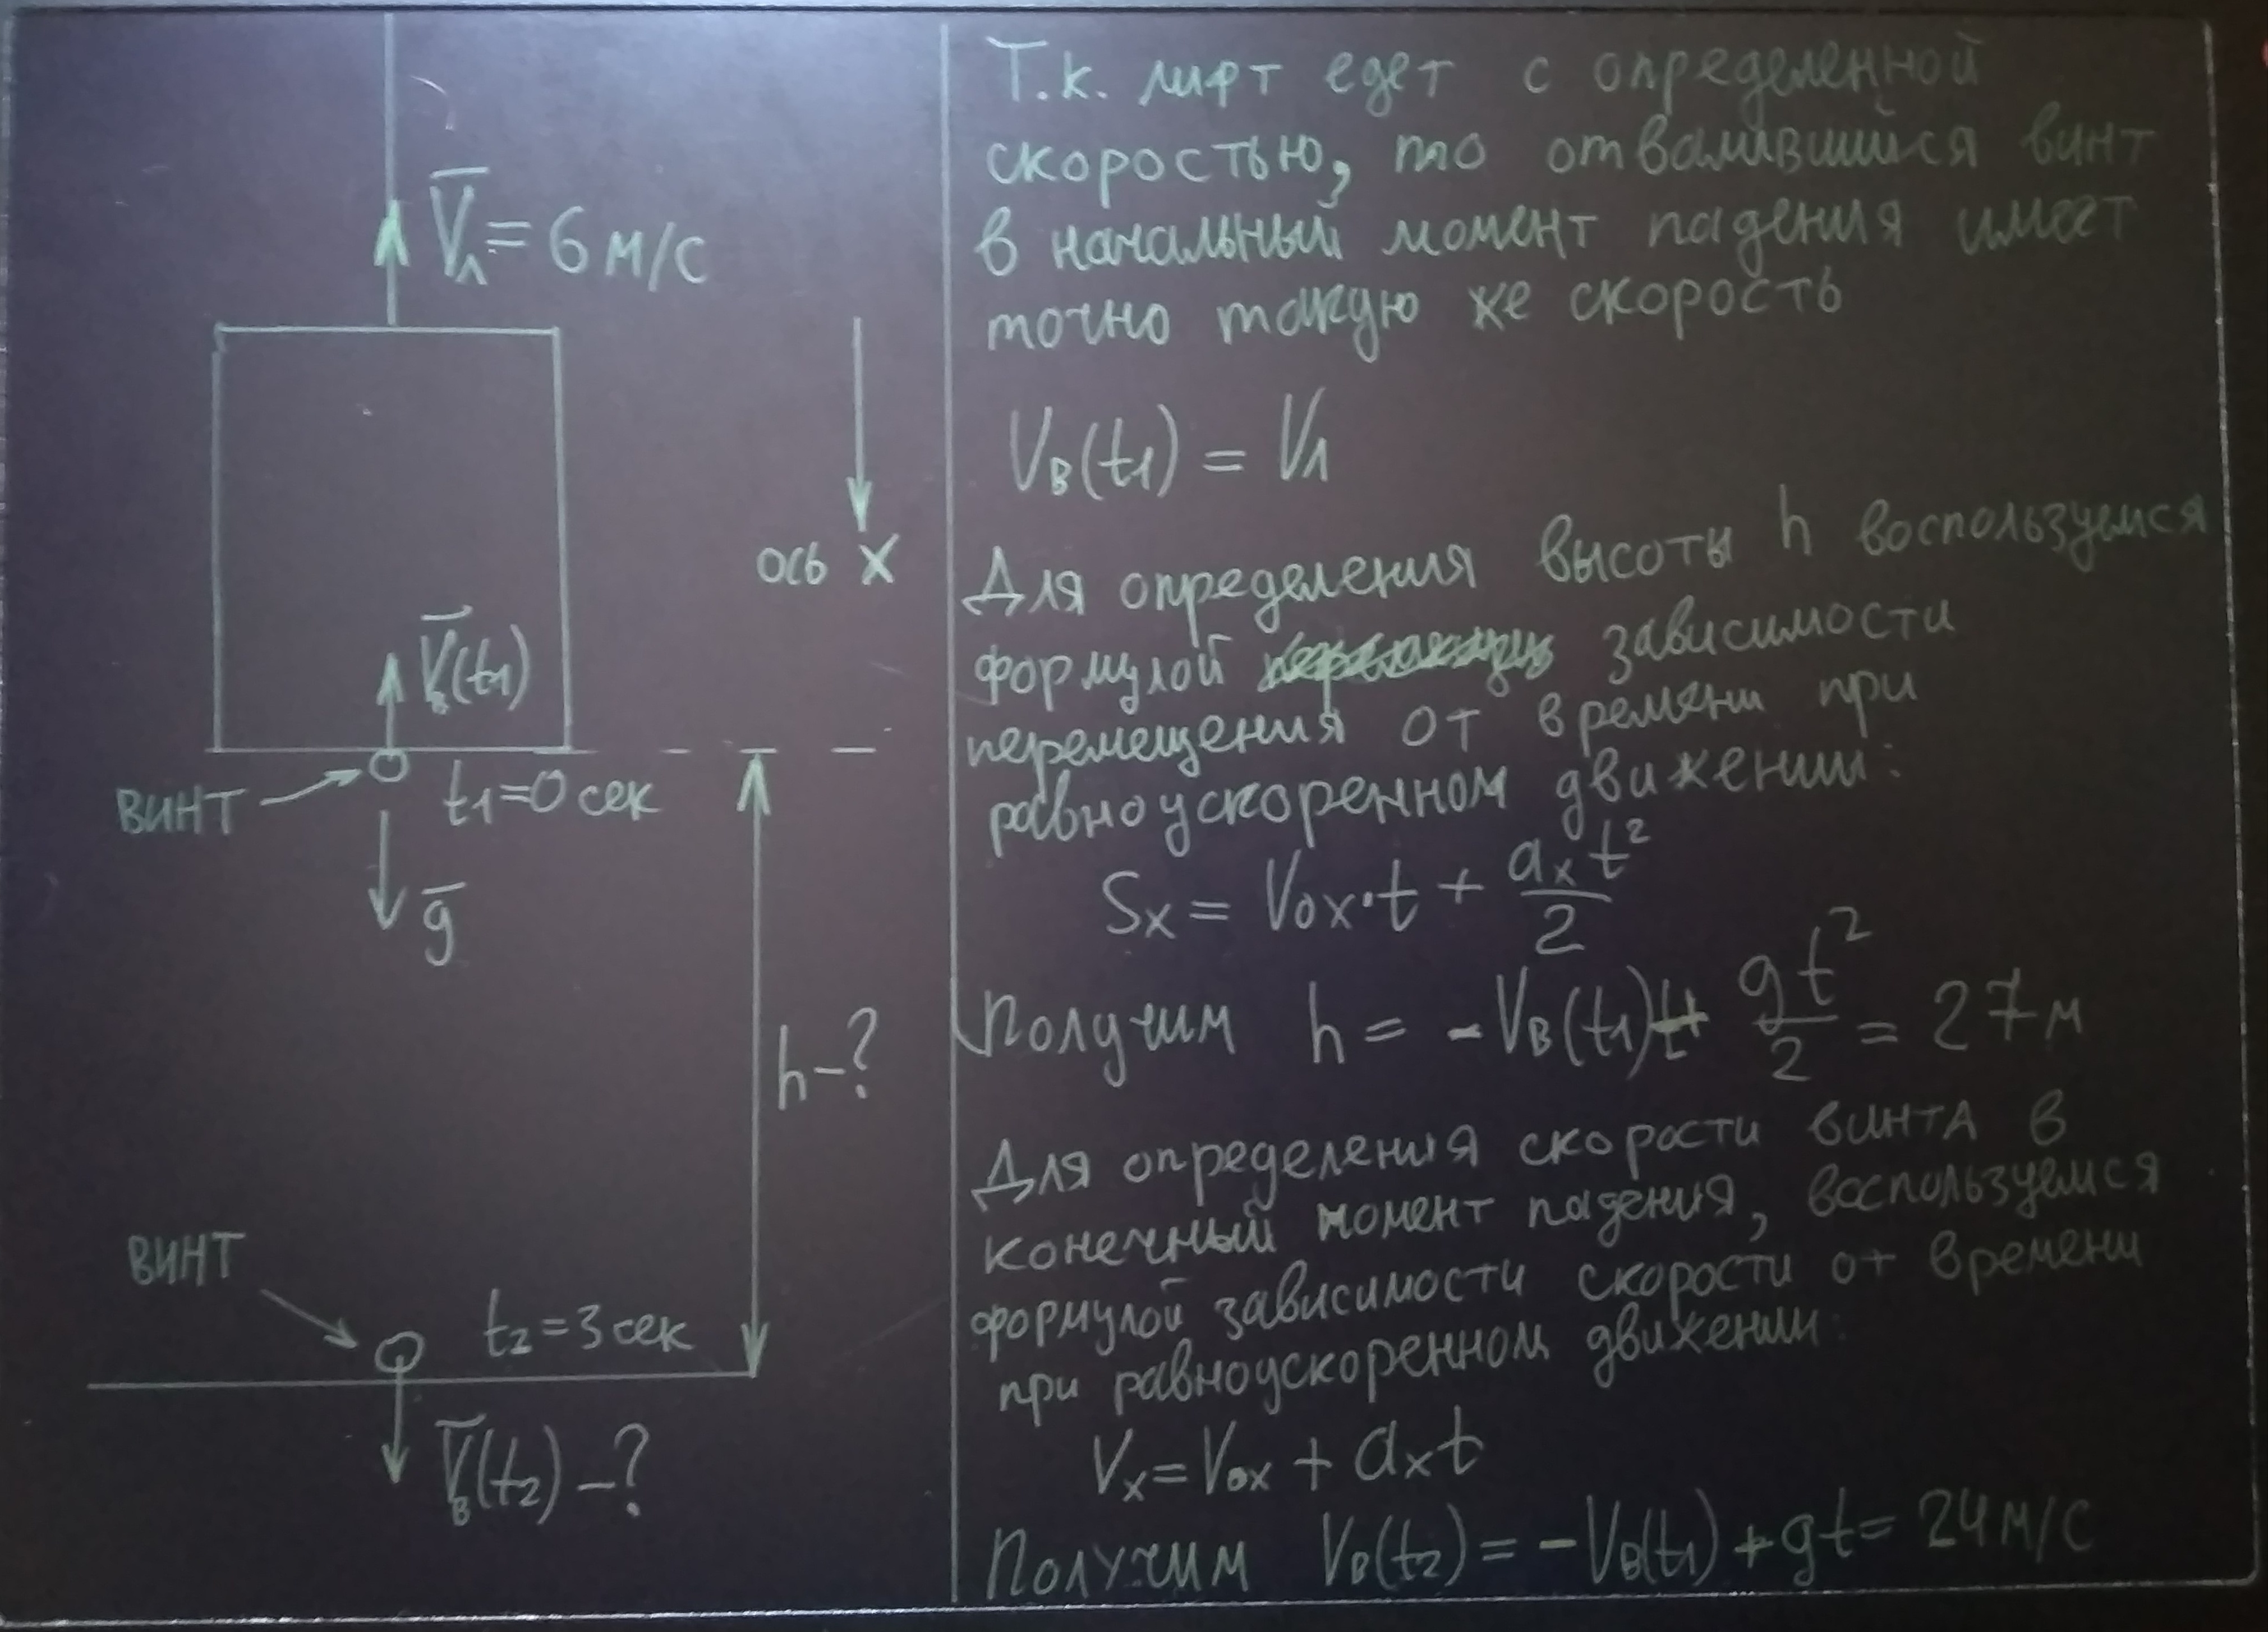 V̅л = 6 м/с
ось X
V̅в(t1)
ВИНТ
t1=0 сек
g̅
h-?
ВИНТ
t2=3 сек
V̅в(t2) -?
Т.к. лифт едет с определенной
скоростью, то отвалившийся винт
в начальный момент падения имеет
точно такую же скорость
Vв(t1) = Vл
Для определения высоты h воспользуемся
формулой зависимости
перемещения от времени при
равноускоренном движении:
Sx = V0x·t + axt²/2
Получим h = -Vв(t1)t+ gt²/2 = 27м
Для определения скорости винта в
конечный момент падения, воспользуемся
формулой зависимости скорости от времени
при равноускоренном движении:
Vx=V0x + axt
Получим Vв(t2) = -Vв(t1) + gt= 24м/с